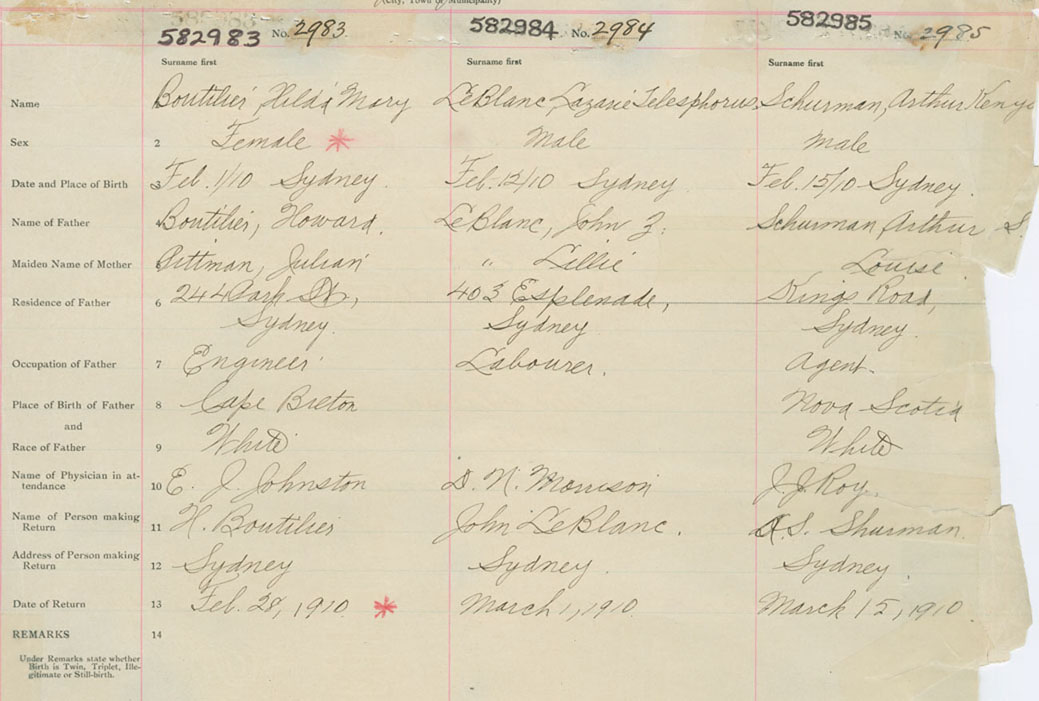 (City, Town or Municipality)
582983 No. 2983 582984 No. 2984 582985 No. 2985
Surname first Surname first Surname first
Name Boutilier, Hilda Mary LeBlanc, Lazarie Telesphorus Schurman, Arthur
Sex 2 Female * Male Male
Date and Place of Birth 3 Feb. 1/10 Sydney. Feb. 12/10 Sydney. Feb. 15/10 Sydney.
Name of Father 4 Boutilier, Howard. LeBlanc, John Z. Schurman, Arthur S.
Maiden Name of Mother 5 Pittman, Julian " Lillie Louise
Residence of Father 6 244 Park St, 403 Esplenade, Kings Road,
Sydney. Sydney Sydney.
Occupation of Father 7 Engineer Labourer. Agent.
Place of Birth of Father 8 Cape Breton Nova Scotia
and
Race of Father 9 White White
Name of Physician in at-
tendance 10 E. J. Johnston D. N. Morrison J. J. Roy.
Name of Person making
Return 11 H. Boutilier John LeBlanc. A. S. Shurman.
Address of Person making
Return 12 Sydney Sydney. Sydney.
Date of Return 13 Feb. 28, 1910 * March 1, 1910. March 15, 1910
REMARKS 14
Under Remarks state whether
Birth is Twin, Triplet, Ille-
gitimate or Still-birth.